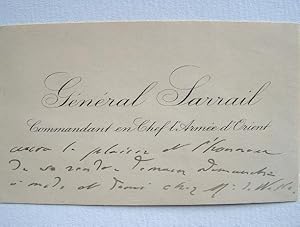 Général Sarrail
Commandant en Chef l'Armée d'Orient
aura le plaisir et l'honneur
de se rendre demain dimanche
à midi et demi chez M.